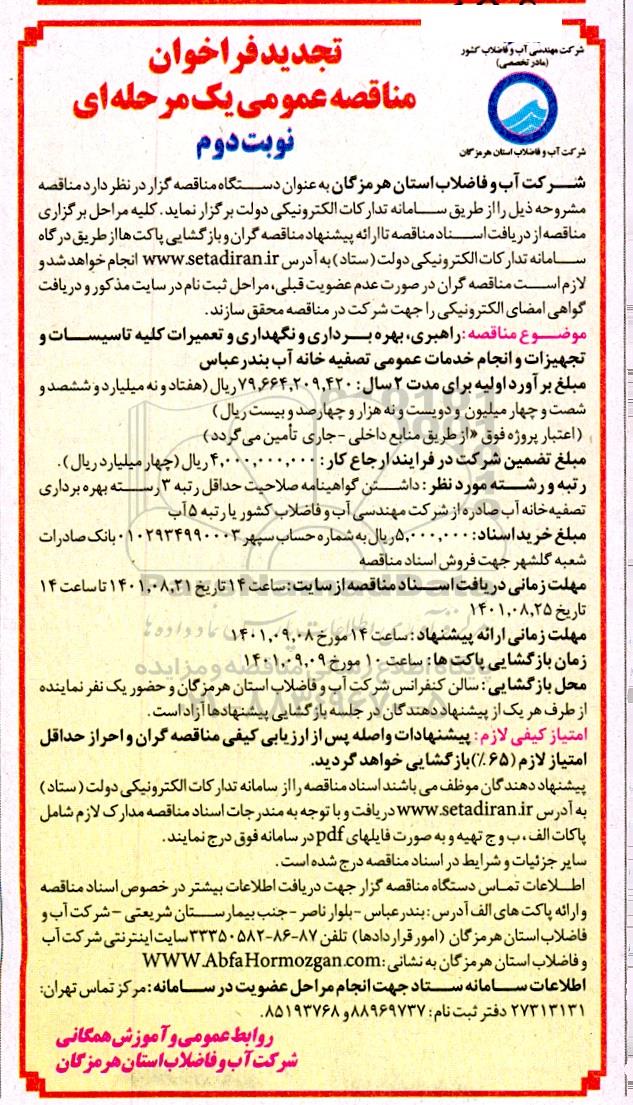 شرکت مهندسی آب و فاضلاب کشور
(مادر تخصصی)
شرکت آب و فاضلاب استان هرمزگان
تجدید فراخوان
مناقصه عمومی یک مرحله ای
نوبت دوم
شرکت آب و فاضلاب استان هرمزگان به عنوان دستگاه مناقصه گزار در نظر دارد مناقصه
مشروحه ذیل را از طریق سامانه تدارکات الکترونیکی دولت برگزار نماید. کلیه مراحل برگزاری
مناقصه از دریافت اسناد مناقصه تا ارائه پیشنهاد مناقصه گران و بازگشایی پاکت ها از طریق درگاه
سامانه تدارکات الکترونیکی دولت (ستاد) به آدرس www.setadiran.ir انجام خواهد شد و
لازم است مناقصه گران در صورت عدم عضویت قبلی، مراحل ثبت نام در سایت مذکور و دریافت
گواهی امضای الکترونیکی را جهت شرکت در مناقصه محقق سازند.
موضوع مناقصه: راهبری، بهره برداری و نگهداری و تعمیرات کلیه تاسیسات و
تجهیزات و انجام خدمات عمومی تصفیه خانه آب بندرعباس
مبلغ برآورد اولیه برای مدت ۲ سال: ۷۹,۶۶۴,۲۰۹,۴۲۰ ریال (هفتاد و نه میلیارد و ششصد و
شصت و چهار میلیون و دویست و نه هزار و چهارصد و بیست ریال)
(اعتبار پروژه فوق «از طریق منابع داخلی - جاری تأمین می گردد)
مبلغ تضمین شرکت در فرایند ارجاع کار: ۴,۰۰۰,۰۰۰,۰۰۰ ریال (چهار میلیارد ریال).
رتبه و رشته مورد نظر: داشتن گواهینامه صلاحیت حداقل رتبه ۳ رسته بهره برداری
تصفیه خانه آب صادره از شرکت مهندسی آب و فاضلاب کشور یا رتبه ۵ آب
مبلغ خرید اسناد: ۵,۰۰۰,۰۰۰ ریال به شماره حساب سپهر ۰۱۰۲۹۳۴۹۹۰۰۰۳ بانک صادرات
شعبه گلشهر جهت فروش اسناد مناقصه
مهلت زمانی دریافت اسناد مناقصه از سایت: ساعت ۱۴ تاریخ ۱۴۰۱,۰۸,۲۱ تا ساعت ۱۴
تاریخ ۱۴۰۱,۰۸,۲۵
مهلت زمانی ارائه پیشنهاد: ساعت ۱۴ مورخ ۱۴۰۱,۰۹,۰۸
زمان بازگشایی پاکت ها: ساعت ۱۰ مورخ ۱۴۰۱,۰۹,۰۹
محل بازگشایی: سالن کنفرانس شرکت آب و فاضلاب استان هرمزگان و حضور یک نفر نماینده
از طرف هر یک از پیشنهاد دهندگان در جلسه بازگشایی پیشنهادها آزاد است.
امتیاز کیفی لازم: پیشنهادات واصله پس از ارزیابی کیفی مناقصه گران و احراز حداقل
امتیاز لازم (۶۵٪) بازگشایی خواهد گردید.
پیشنهاد دهندگان موظف می باشند اسناد مناقصه را از سامانه تدارکات الکترونیکی دولت (ستاد)
به آدرس www.setadiran.ir دریافت و با توجه به مندرجات اسناد مناقصه مدارک لازم شامل
پاکات الف، ب و ج تهیه و به صورت فایلهای pdf در سامانه فوق درج نمایند.
سایر جزئیات و شرایط در اسناد مناقصه درج شده است.
اطلاعات تماس دستگاه مناقصه گزار جهت دریافت اطلاعات بیشتر در خصوص اسناد مناقصه
و ارائه پاکت های الف آدرس: بندرعباس - بلوار ناصر - جنب بیمارستان شریعتی - شرکت آب و
فاضلاب استان هرمزگان (امور قراردادها) تلفن ۸۷-۸۶-۳۳۳۵۰۵۸۲ سایت اینترنتی شرکت آب
و فاضلاب استان هرمزگان به نشانی: WWW.AbfaHormozgan.com
اطلاعات سامانه ستاد جهت انجام مراحل عضویت در سامانه: مرکز تماس تهران:
۲۷۳۱۳۱۳۱ دفتر ثبت نام: ۸۸۹۶۹۷۳۷ و ۸۵۱۹۳۷۶۸.
روابط عمومی و آموزش همگانی
شرکت آب و فاضلاب استان هرمزگان